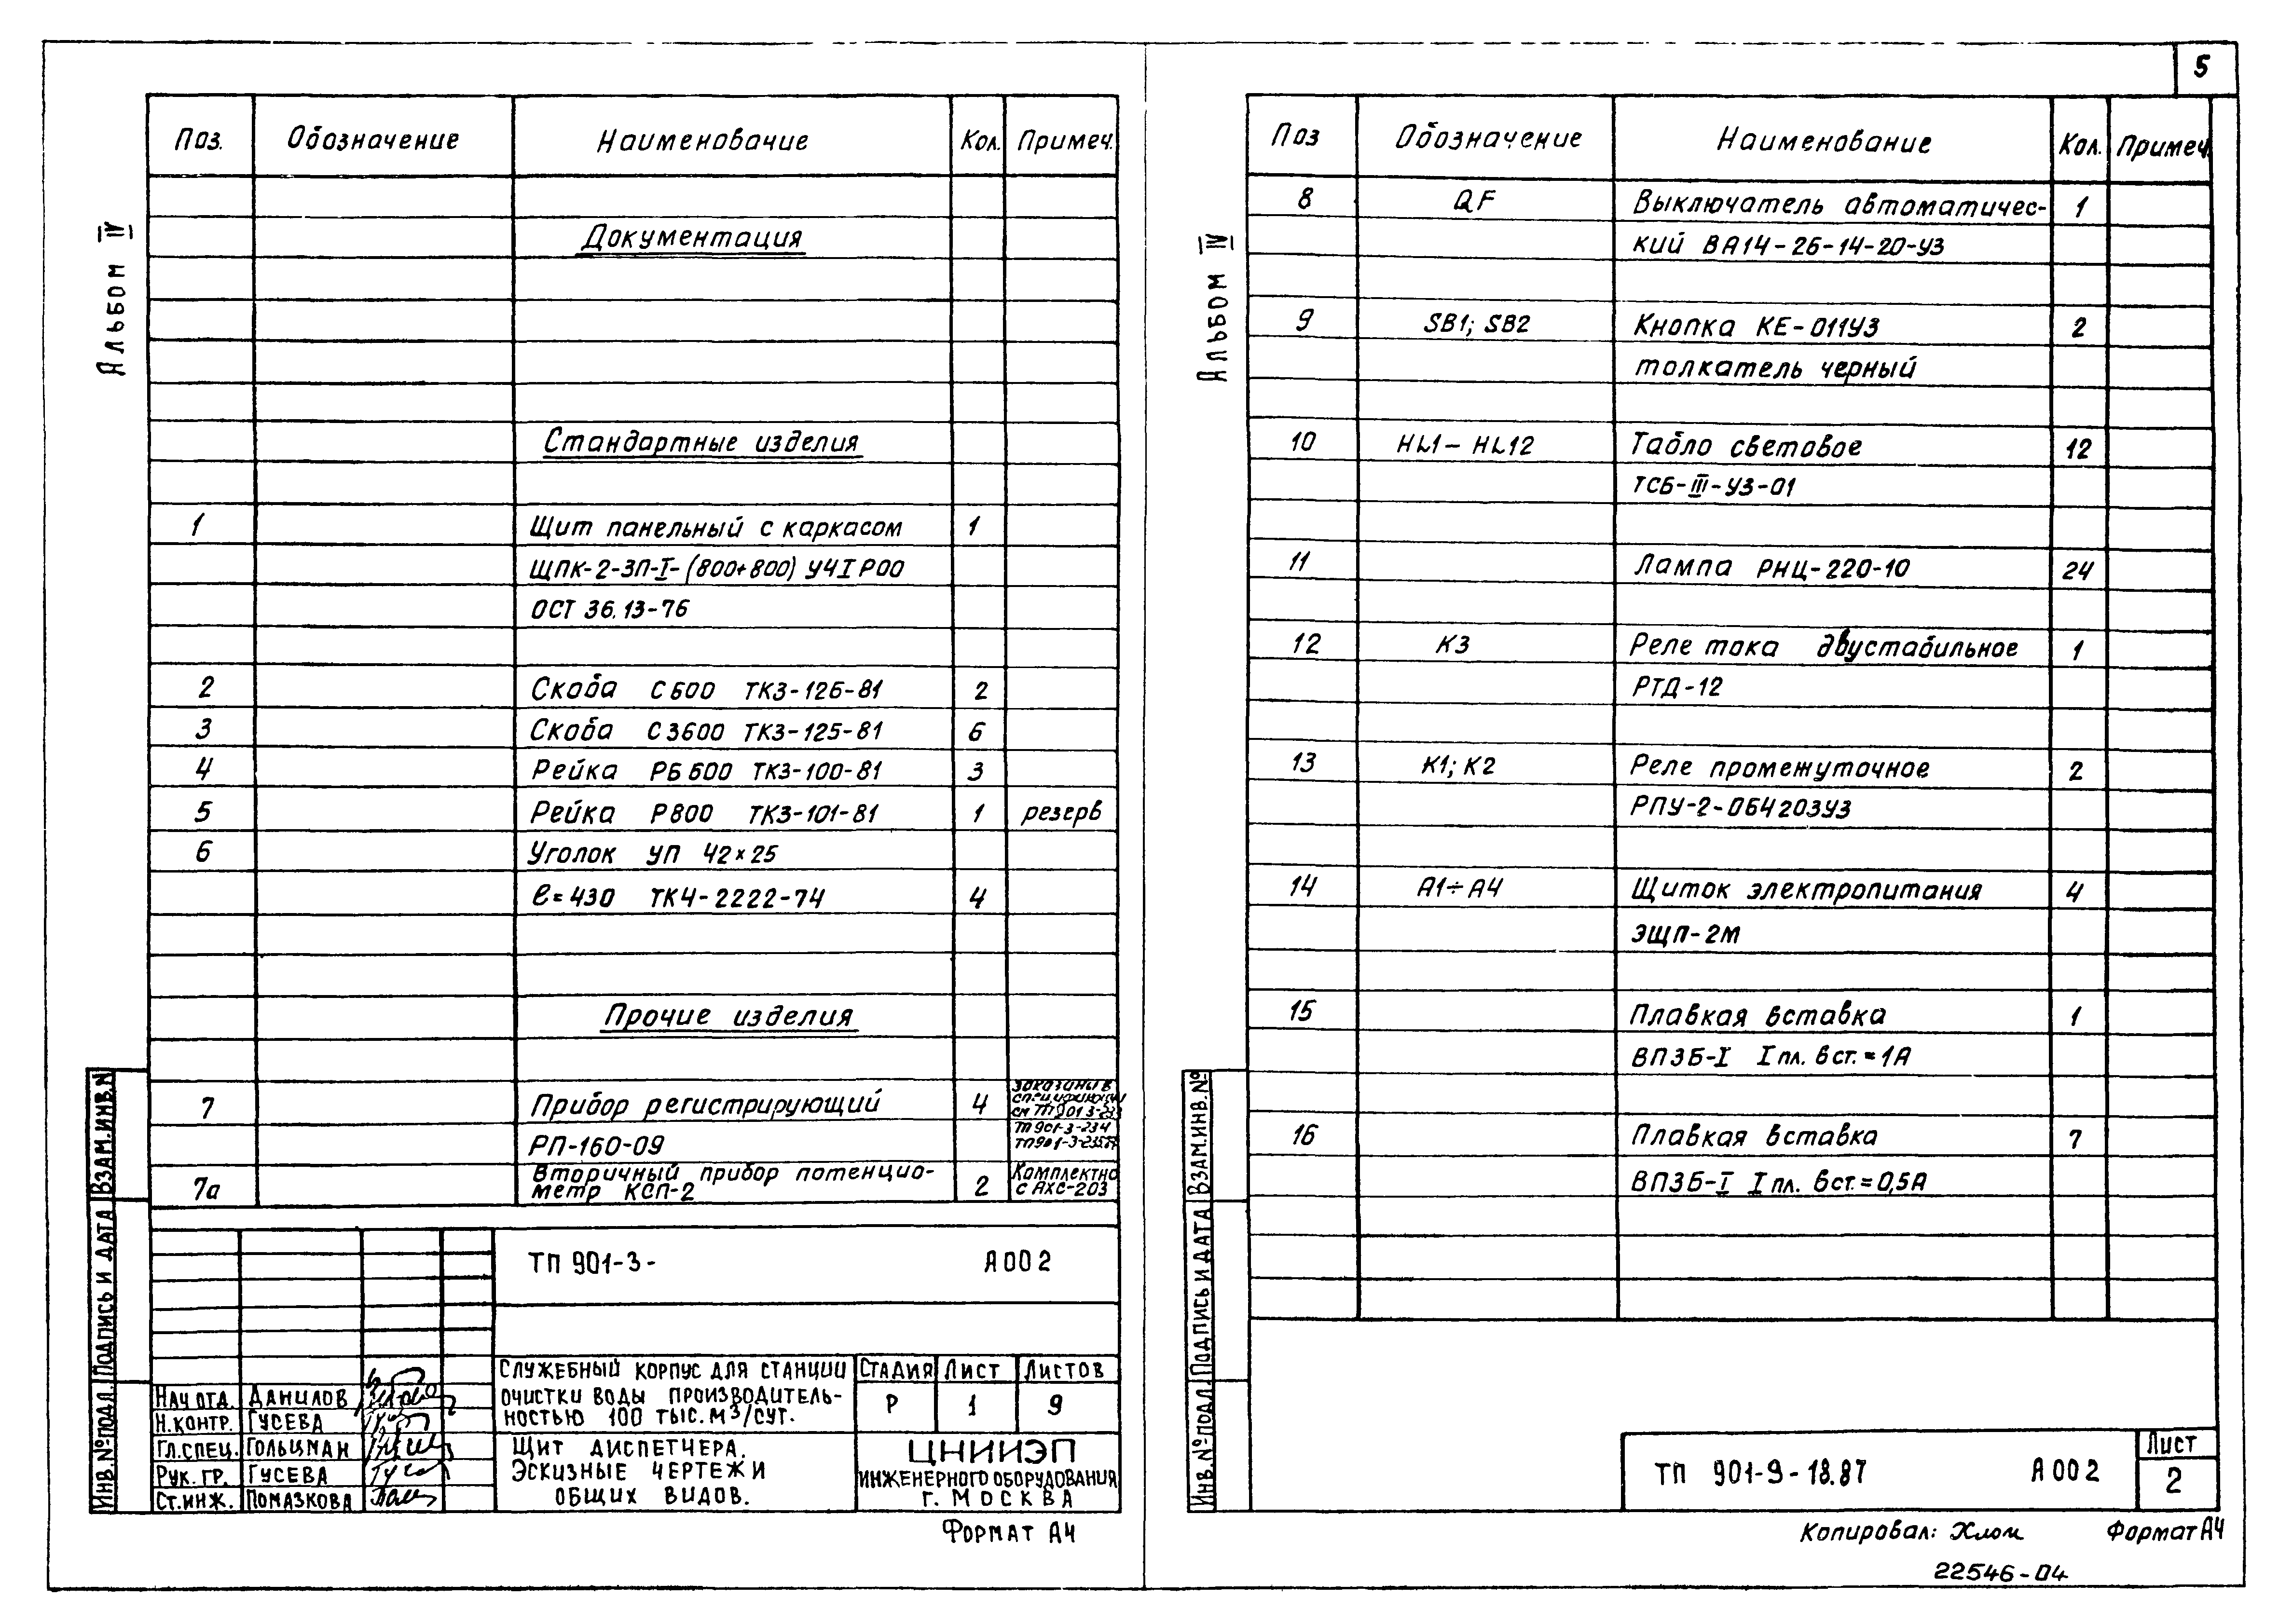 5
Альбом IV
Поз. Обозначение Наименование Кол. Примеч.
Документация
Стандартные изделия
1 Щит панельный с каркасом 1
ЩПК-2-ЗП-I-(800+800) У4 IР00
ОСТ 36.13-76
2 Скоба С600 ТК3-126-81 2
3 Скоба С3600 ТК3-125-81 6
4 Рейка РБ600 ТК3-100-81 3
5 Рейка Р800 ТК3-101-81 1 резерв
6 Уголок УП 42×25
ℓ=430 ТК4-2222-74 4
Прочие изделия
7 Прибор регистрирующий 4
РП-160-09
ТП901-3-234
7а Вторичный прибор потенцио-
метр КСП-2 2 Комплектно
с АХС-203
ТП 901-3- А002
Служебный корпус для станции
очистки воды производитель-
ностью 100 тыс. м³/сут.
Стадия Лист Листов
Р 1 9
Нач отд. Данилов
Н.контр. Гусева
Гл.спец. Гольцман
Рук. гр. Гусева
Ст.инж. Помазкова
Щит диспетчера.
Эскизные чертежи
общих видов.
ЦНИИЭП
инженерного оборудования
г. Москва
Инв.№подл. Подпись и дата Взам.инв.N
Формат А4
Альбом IV
Поз Обозначение Наименование Кол. Примеч.
8 QF Выключатель автоматичес- 1
кий ВА14-26-14-20-У3
9 SB1; SB2 Кнопка КЕ-011У3 2
толкатель черный
10 HL1- HL12 Табло световое 12
ТСБ-III-У3-01
11 Лампа РНЦ-220-10 24
12 К3 Реле тока двустабильное 1
РТД-12
13 К1; К2 Реле промежуточное 2
РПУ-2-064203У3
14 А1÷А4 Щиток электропитания 4
ЭЩП-2М
15 Плавкая вставка 1
ВП3Б-I I пл. вст.=1А
16 Плавкая вставка 7
ВП3Б-I I пл. вст.=0,5А
Инв.№подл. Подпись и дата Взам.инв.№
ТП 901-9-18.87 А002
Лист
2
Копировал: Хлом Формат А4
22546-04